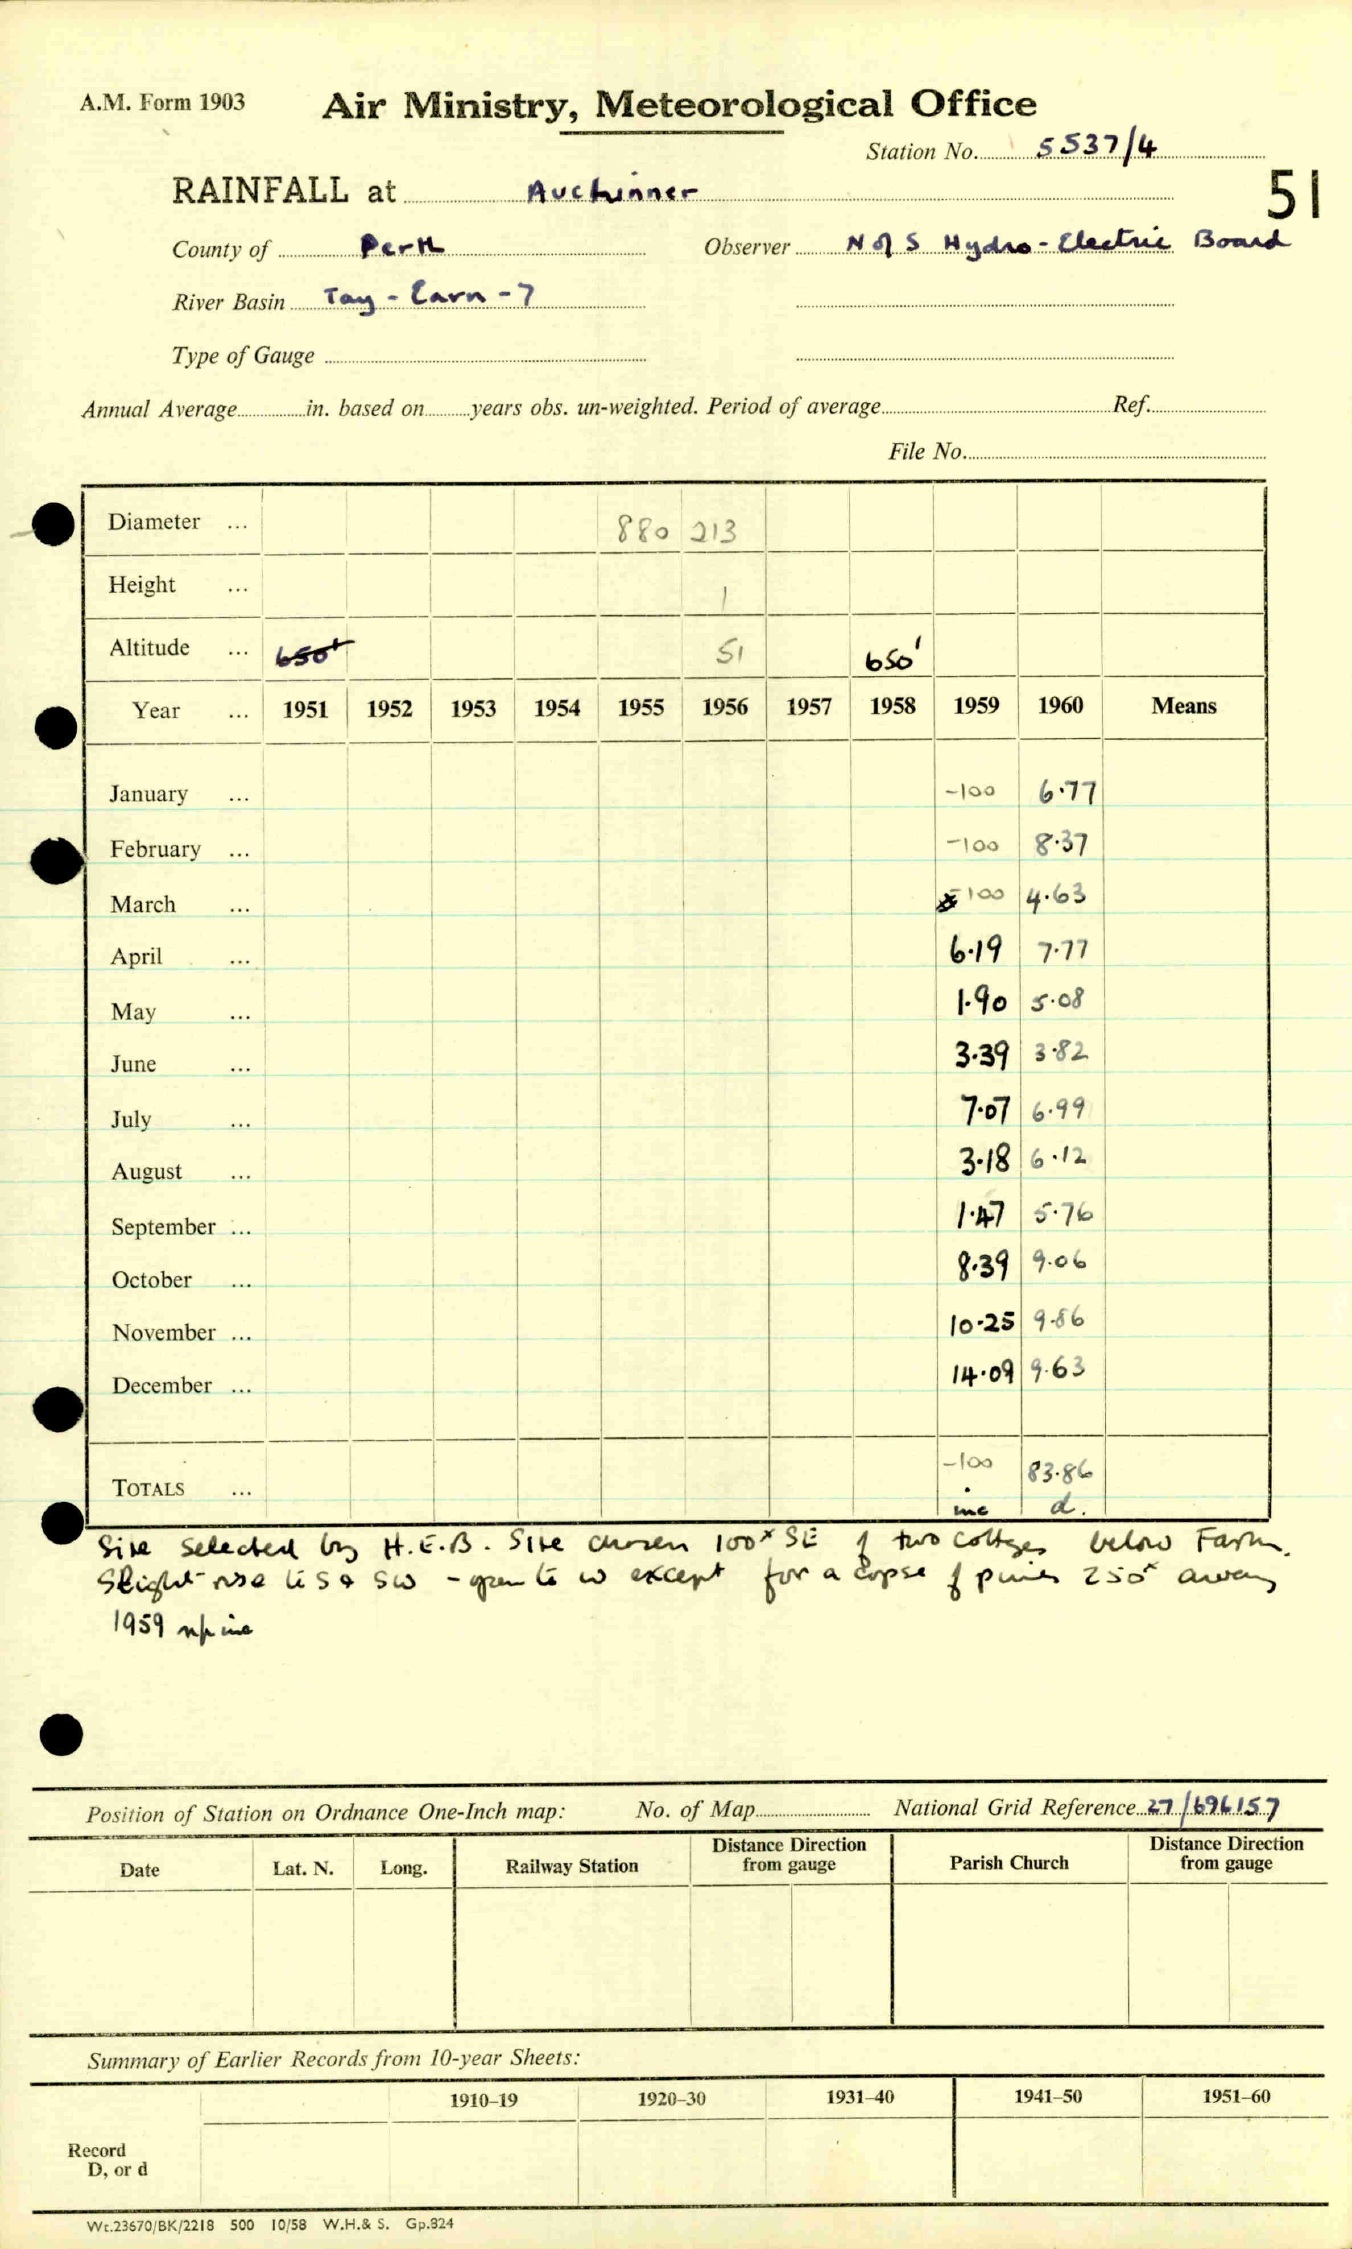 A.M. Form 1903
Air Ministry, Meteorological Office
Station No. 5537/4
51
RAINFALL at Auchinner
County of Perth Observer N of S Hydro-Electric Board
River Basin Tay - Earn - 7
Type of Gauge
Annual Average in. based on years obs. un-weighted. Period of average Ref.
File No.
Diameter ... 880 213
Height ... 1
Altitude ... 650' 51 650'
Year ... 1951 1952 1953 1954 1955 1956 1957 1958 1959 1960 Means
January ... -100 6.77
February ... -100 8.37
March ... -100 4.63
April ... 6.19 7.77
May ... 1.90 5.08
June ... 3.39 3.82
July ... 7.07 6.99
August ... 3.18 6.12
September ... 1.47 5.76
October ... 8.39 9.06
November ... 10.25 9.86
December ... 14.09 9.63
TOTALS ... -100 83.86
inc d.
Site selected by H.E.B. Site chosen 100x SE of two cottges below Farm.
Slight rise to S & SW - open to W except for a copse of pines 250x away
1959 inc
Position of Station on Ordnance One-Inch map: No. of Map National Grid Reference 27/696157
Date Lat. N. Long. Railway Station Distance Direction from gauge Parish Church Distance Direction from gauge
Summary of Earlier Records from 10-year Sheets:
1910–19 1920–30 1931–40 1941–50 1951–60
Record
D, or d
Wt.23670/BK/2218 500 10/58 W.H.& S. Gp.824